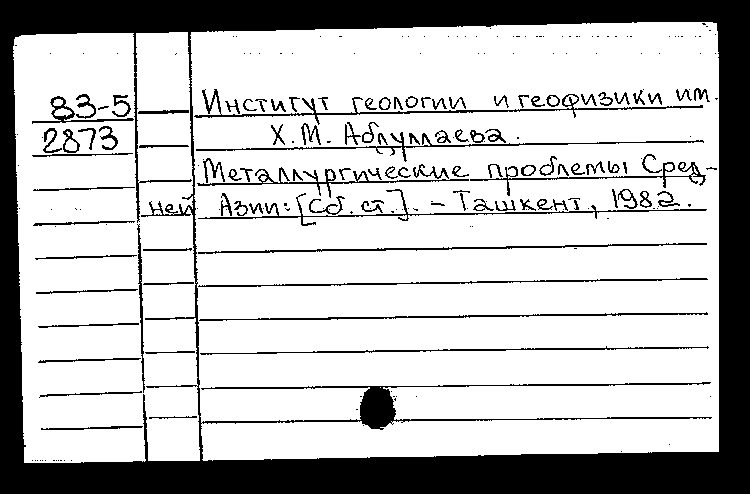 83-5 Институт геологии и геофизики им.
2873 Х.М. Абдуллаева.
Металлургические проблемы Сред-
ней Азии: [Сб. ст.]. - Ташкент, 1982.